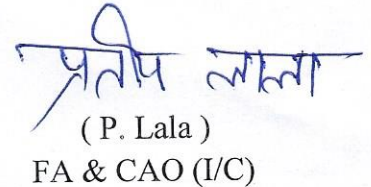 प्रतीप लाला
( P. Lala )
FA & CAO (I/C)